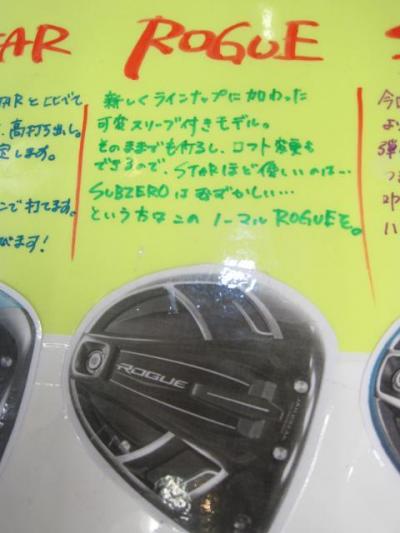 TAR ROGUE S
TARと比べて
、高打ち出し。
定します。
ンで打てます。
びます!
新しくラインナップに加わった
可変スリーブ付きモデル。
そのままでも打てるし、ロフト変更も
できるので、STARほど優しいのは…
SUBZEROはむずかしい…
という方はこのノーマルROGUEを。
今
より
弾
つ
ROGUE